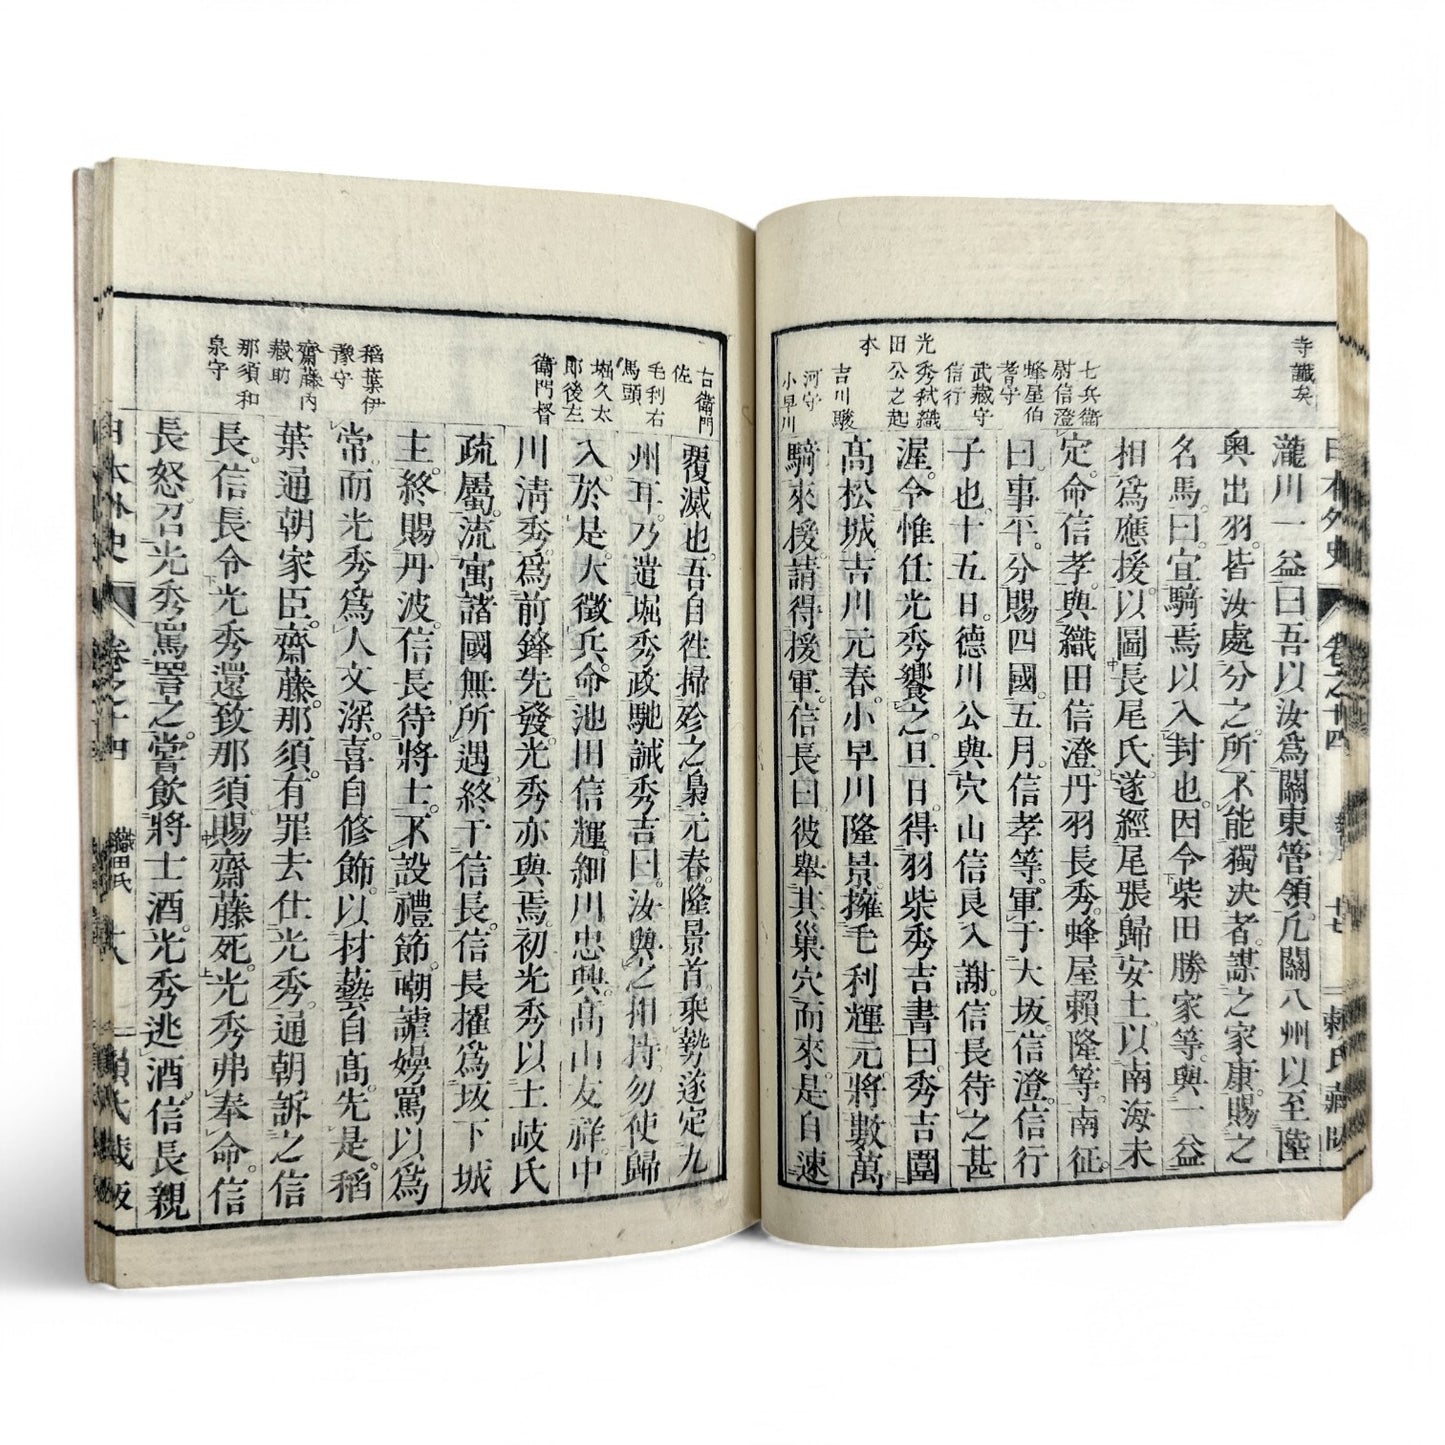 日本外史
卷之十四
十七
賴氏藏版
寺讖矣
七兵衛
尉信澄
蜂屋伯
耆守
武藏守
信行
光秀弑織
田公之起
本
吉川駿
河守
小早川
瀧川一益曰吾以汝爲關東管領凡關八州以至陸
奥出羽皆汝處分之所不能獨决者謀之家康賜之
名馬曰宜騎焉以入封也因令柴田勝家等與一益
相爲應援以圖長尾氏遂經尾張歸安土以南海未
定命信孝與織田信澄丹羽長秀蜂屋賴隆等南征
曰事平分賜四國五月信孝等軍于大坂信澄信行
子也十五日德川公與穴山信良入謝信長待之甚
渥令惟任光秀饗之旦日得羽柴秀吉書曰秀吉圍
高松城吉川元春小早川隆景擁毛利輝元將數萬
騎來援請得援軍信長曰彼舉其巢穴而來是自速
右衛門
佐
毛利右
馬頭
堀久太
郎後左
衛門督
稻葉伊
豫守
齋藤内
藏助
那須和
泉守
覆滅也吾自往掃殄之梟元春隆景首乘勢遂定九
州耳乃遣堀秀政馳誡秀吉曰汝與之相持勿使歸
入於是大徵兵命池田信輝細川忠興高山友祥中
川清秀爲前鋒先發光秀亦與焉初光秀以土岐氏
疏屬流寓諸國無所遇終干信長信長擢爲坂下城
主終賜丹波信長待將士不設禮節嘲謔嫚罵以爲
常而光秀爲人文深喜自修飾以材藝自高先是稻
葉通朝家臣齋藤那須有罪去仕光秀通朝訴之信
長信長令光秀還致那須賜齋藤死光秀弗奉命信
長怒召光秀罵詈之嘗飲將士酒光秀逃酒信長親
日本外史
卷之十四
織田氏
十八
賴氏藏版